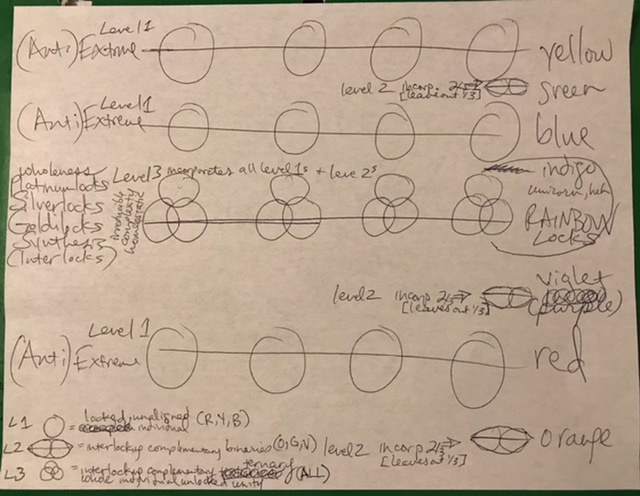 Level 1
(Anti) Extreme yellow
level 2 incorp. 2/3 ⇒ green
[leaves out 1/3]
Level 1
(Anti) Extreme blue
indigo
wholeness Level 3 incorporates all level 1s + level 2s
Platinumlocks
Silverlocks
Goldilocks
Synthesis
(Interlocks)
irreducible
complexity
RAINBOW
LOCKS
violet
level 2 incorp 2/3 ⇒ (purple)
[leaves out 1/3]
Level 1
(Anti) Extreme red
L1 = locked, unaligned (R,Y,B)
individual
L2 = interlockup complementary binaries (O,G,V) level 2 incorp 2/3 ⇒ orange
[leaves out 1/3]
L3 = interlockup complementary ternary (ALL)
whole individual unlocked unity